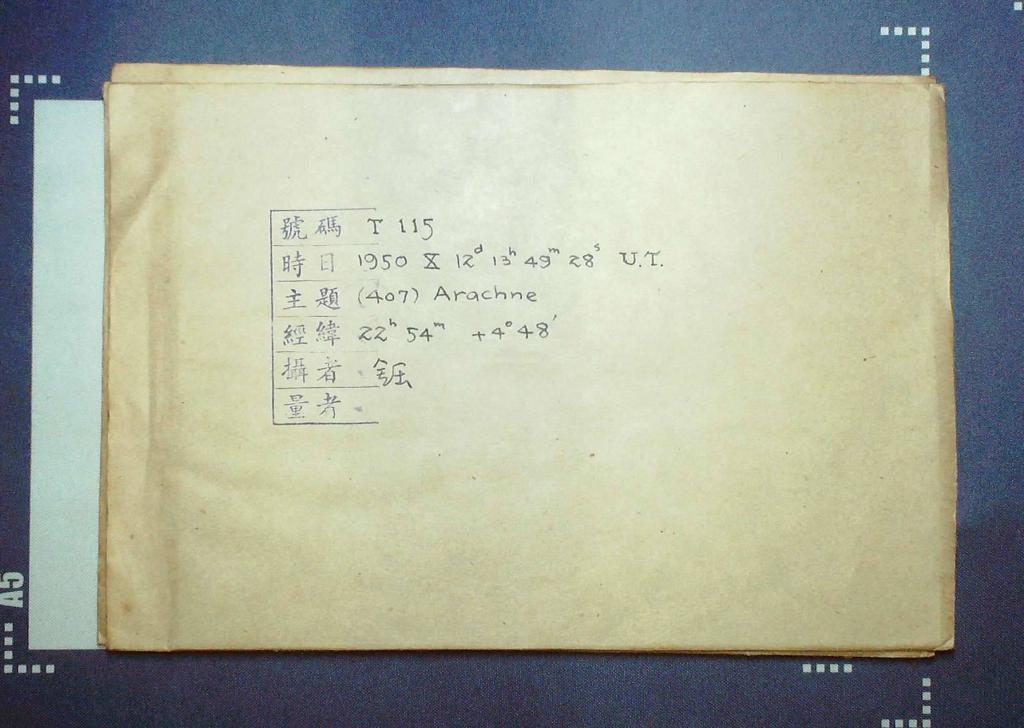 號碼 T 115
時日 1950 X 12ᵈ 13ʰ 49ᵐ 28ˢ U.T.
主題 (407) Arachne
經緯 22ʰ 54ᵐ +4°48′
攝者
量者
A5